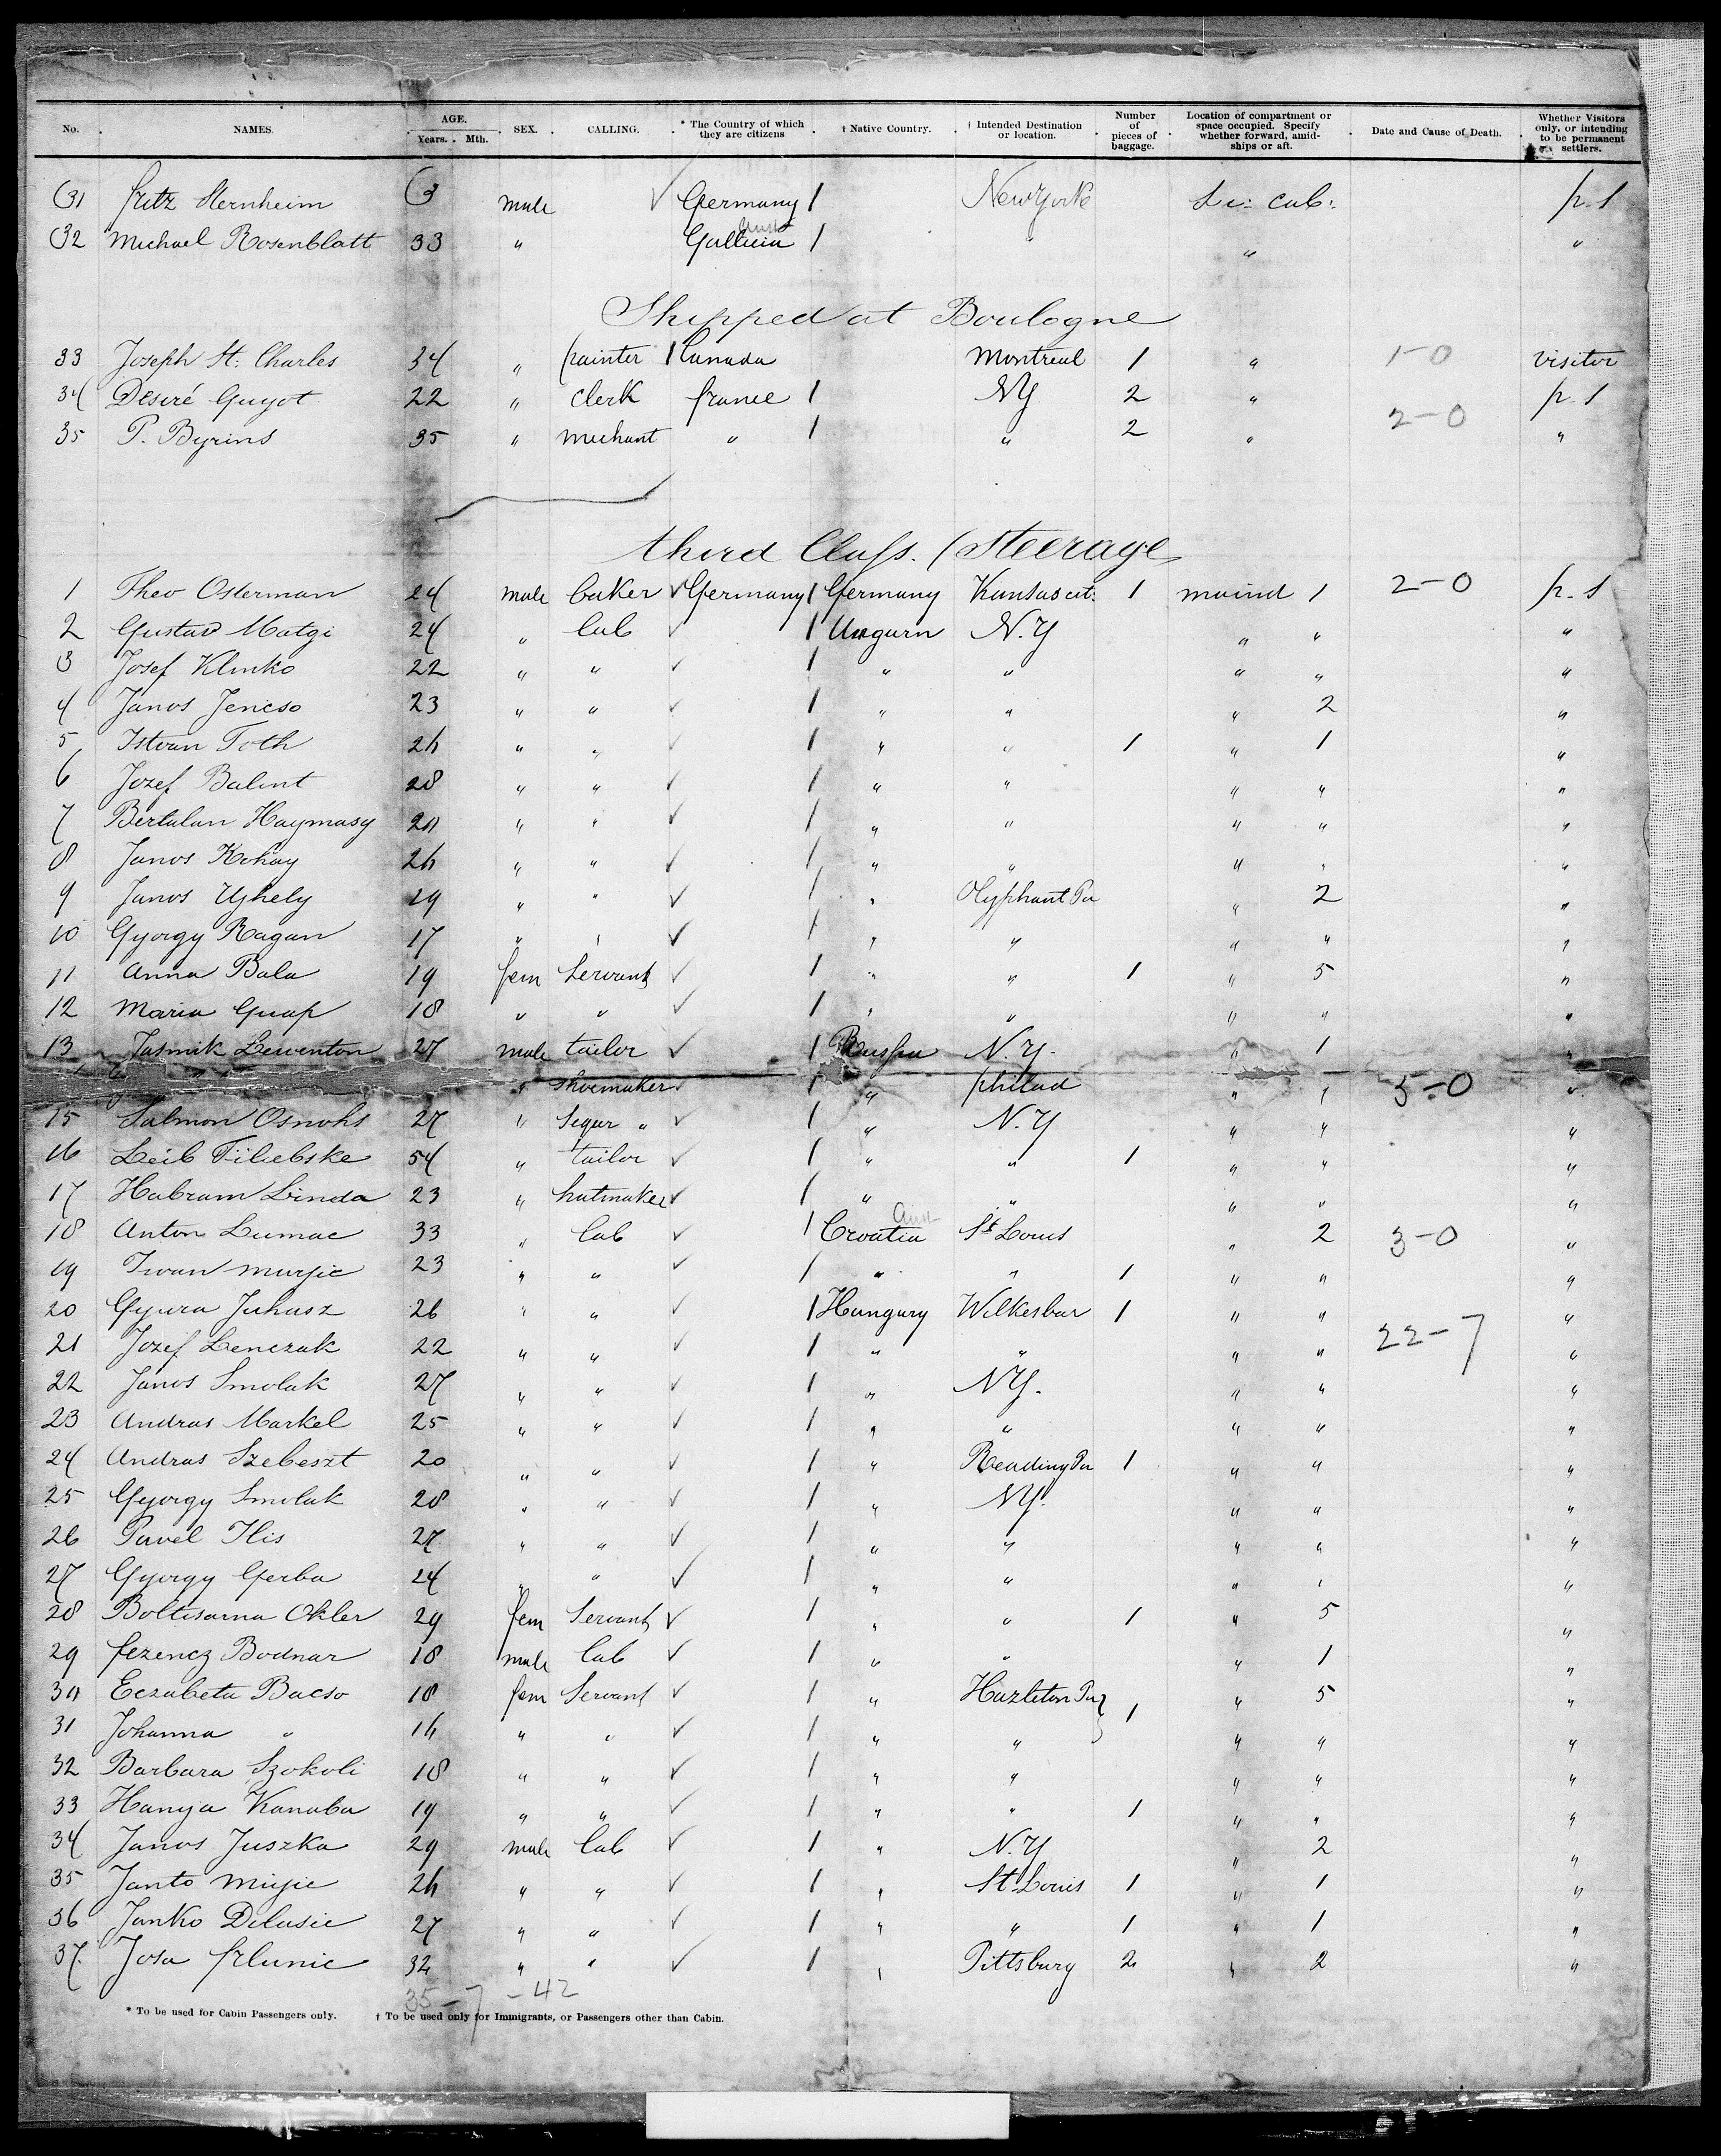 No. NAMES. AGE. Years. Mth. SEX. CALLING. * The Country of which they are citizens † Native Country. † Intended Destination or location. Number of pieces of baggage. Location of compartment or space occupied. Specify whether forward, amidships or aft. Date and Cause of Death. Whether Visitors only, or intending to be permanent settlers.
31 fritz Sternheim 3 male Germany 1 New York Se: cab: p. s
32 Michael Rosenblatt 33 " Gallicia 1 " " "
Shipped at Boulogne
33 Joseph St: Charles 34 " painter 1 Canada Montreal 1 " 1-0 visitor
34 Désiré Guyot 22 " clerk france 1 NY 2 " p. s
35 P. Byrins 35 " mechant " 1 " 2 " 2-0 "
third Class. (Steerage
1 Theo Osterman 24 male baker Germany 1 Germany Kansas cit. 1 maind 1 2-0 p. s
2 Gustav Matgi 24 " lab 1 Ungarn N.Y " " "
3 Josef Klinko 22 " " 1 " " " " "
4 Janos Jencso 23 " " 1 " " " 2 "
5 Istvan Toth 26 " " 1 " " 1 " 1 "
6 Jozef Balint 28 " " 1 " " " " "
7 Bertalan Haymasy 20 " " 1 " " " " "
8 Janos Kohay 26 " " 1 " " " " "
9 Janos Ujhely 19 " " 1 " Olyphant Pa " 2 "
10 Gyorgy Ragan 17 " " 1 " " " " "
11 Anna Bala 19 fem Servant 1 " " 1 " 5 "
12 Maria 18 " " 1 " " " " "
13 Lewenton 27 male tailor 1 Russia N.Y. " 1 "
" shoemaker 1 " philad " 1 5-0 "
15 Salmon Osnohs 27 " Segar " 1 " N.Y " " "
16 Leib 54 " tailor 1 " " 1 " " "
17 Habram Linda 23 " hatmaker 1 " " " " "
18 Anton Lumac 33 " lab 1 Croatia St Louis " 2 3-0 "
19 Iwan Murjic 23 " " 1 " " 1 " " "
20 Gyura Juhasz 26 " " 1 Hungary Wilkesbar 1 " " "
21 Jozef Lenczak 22 " " 1 " " " " 22-7 "
22 Janos Smolak 27 " " 1 " NY. " " "
23 Andras Markel 25 " " 1 " " " " "
24 Andras Szebeszt 20 " " 1 " Reading Pa 1 " " "
25 Gyorgy Smolak 28 " " 1 " NY. " " "
26 Pavel Ilis 27 " " 1 " " " " "
27 Gyorgy Gerba 24 " " 1 " " " " "
28 Boltisarna Okler 29 fem Servant 1 " " 1 " 5 "
29 ferencz Bodnar 18 male lab 1 " " " 1 "
30 Erzabeta Bacso 18 fem Servant 1 " Hazleton Pa 1 " 5 "
31 Johanna " 16 " " 1 " " " " "
32 Barbara Szokoli 18 " " 1 " " " " "
33 Hanya Kanaba 19 " " 1 " " 1 " " "
34 Janos Juszka 29 male lab 1 " N.Y " 2 "
35 Janto Mirjic 26 " " 1 " St Louis 1 " 1 "
36 Janko Delusic 27 " " 1 " " 1 " 1 "
37. Josa frlunic 32 " " 1 " Pittsburg 2 " 2 "
35-7 -42
* To be used for Cabin Passengers only. † To be used only for Immigrants, or Passengers other than Cabin.